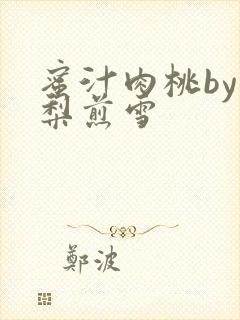 蜜汁肉桃by
梨煎雪
鄭波